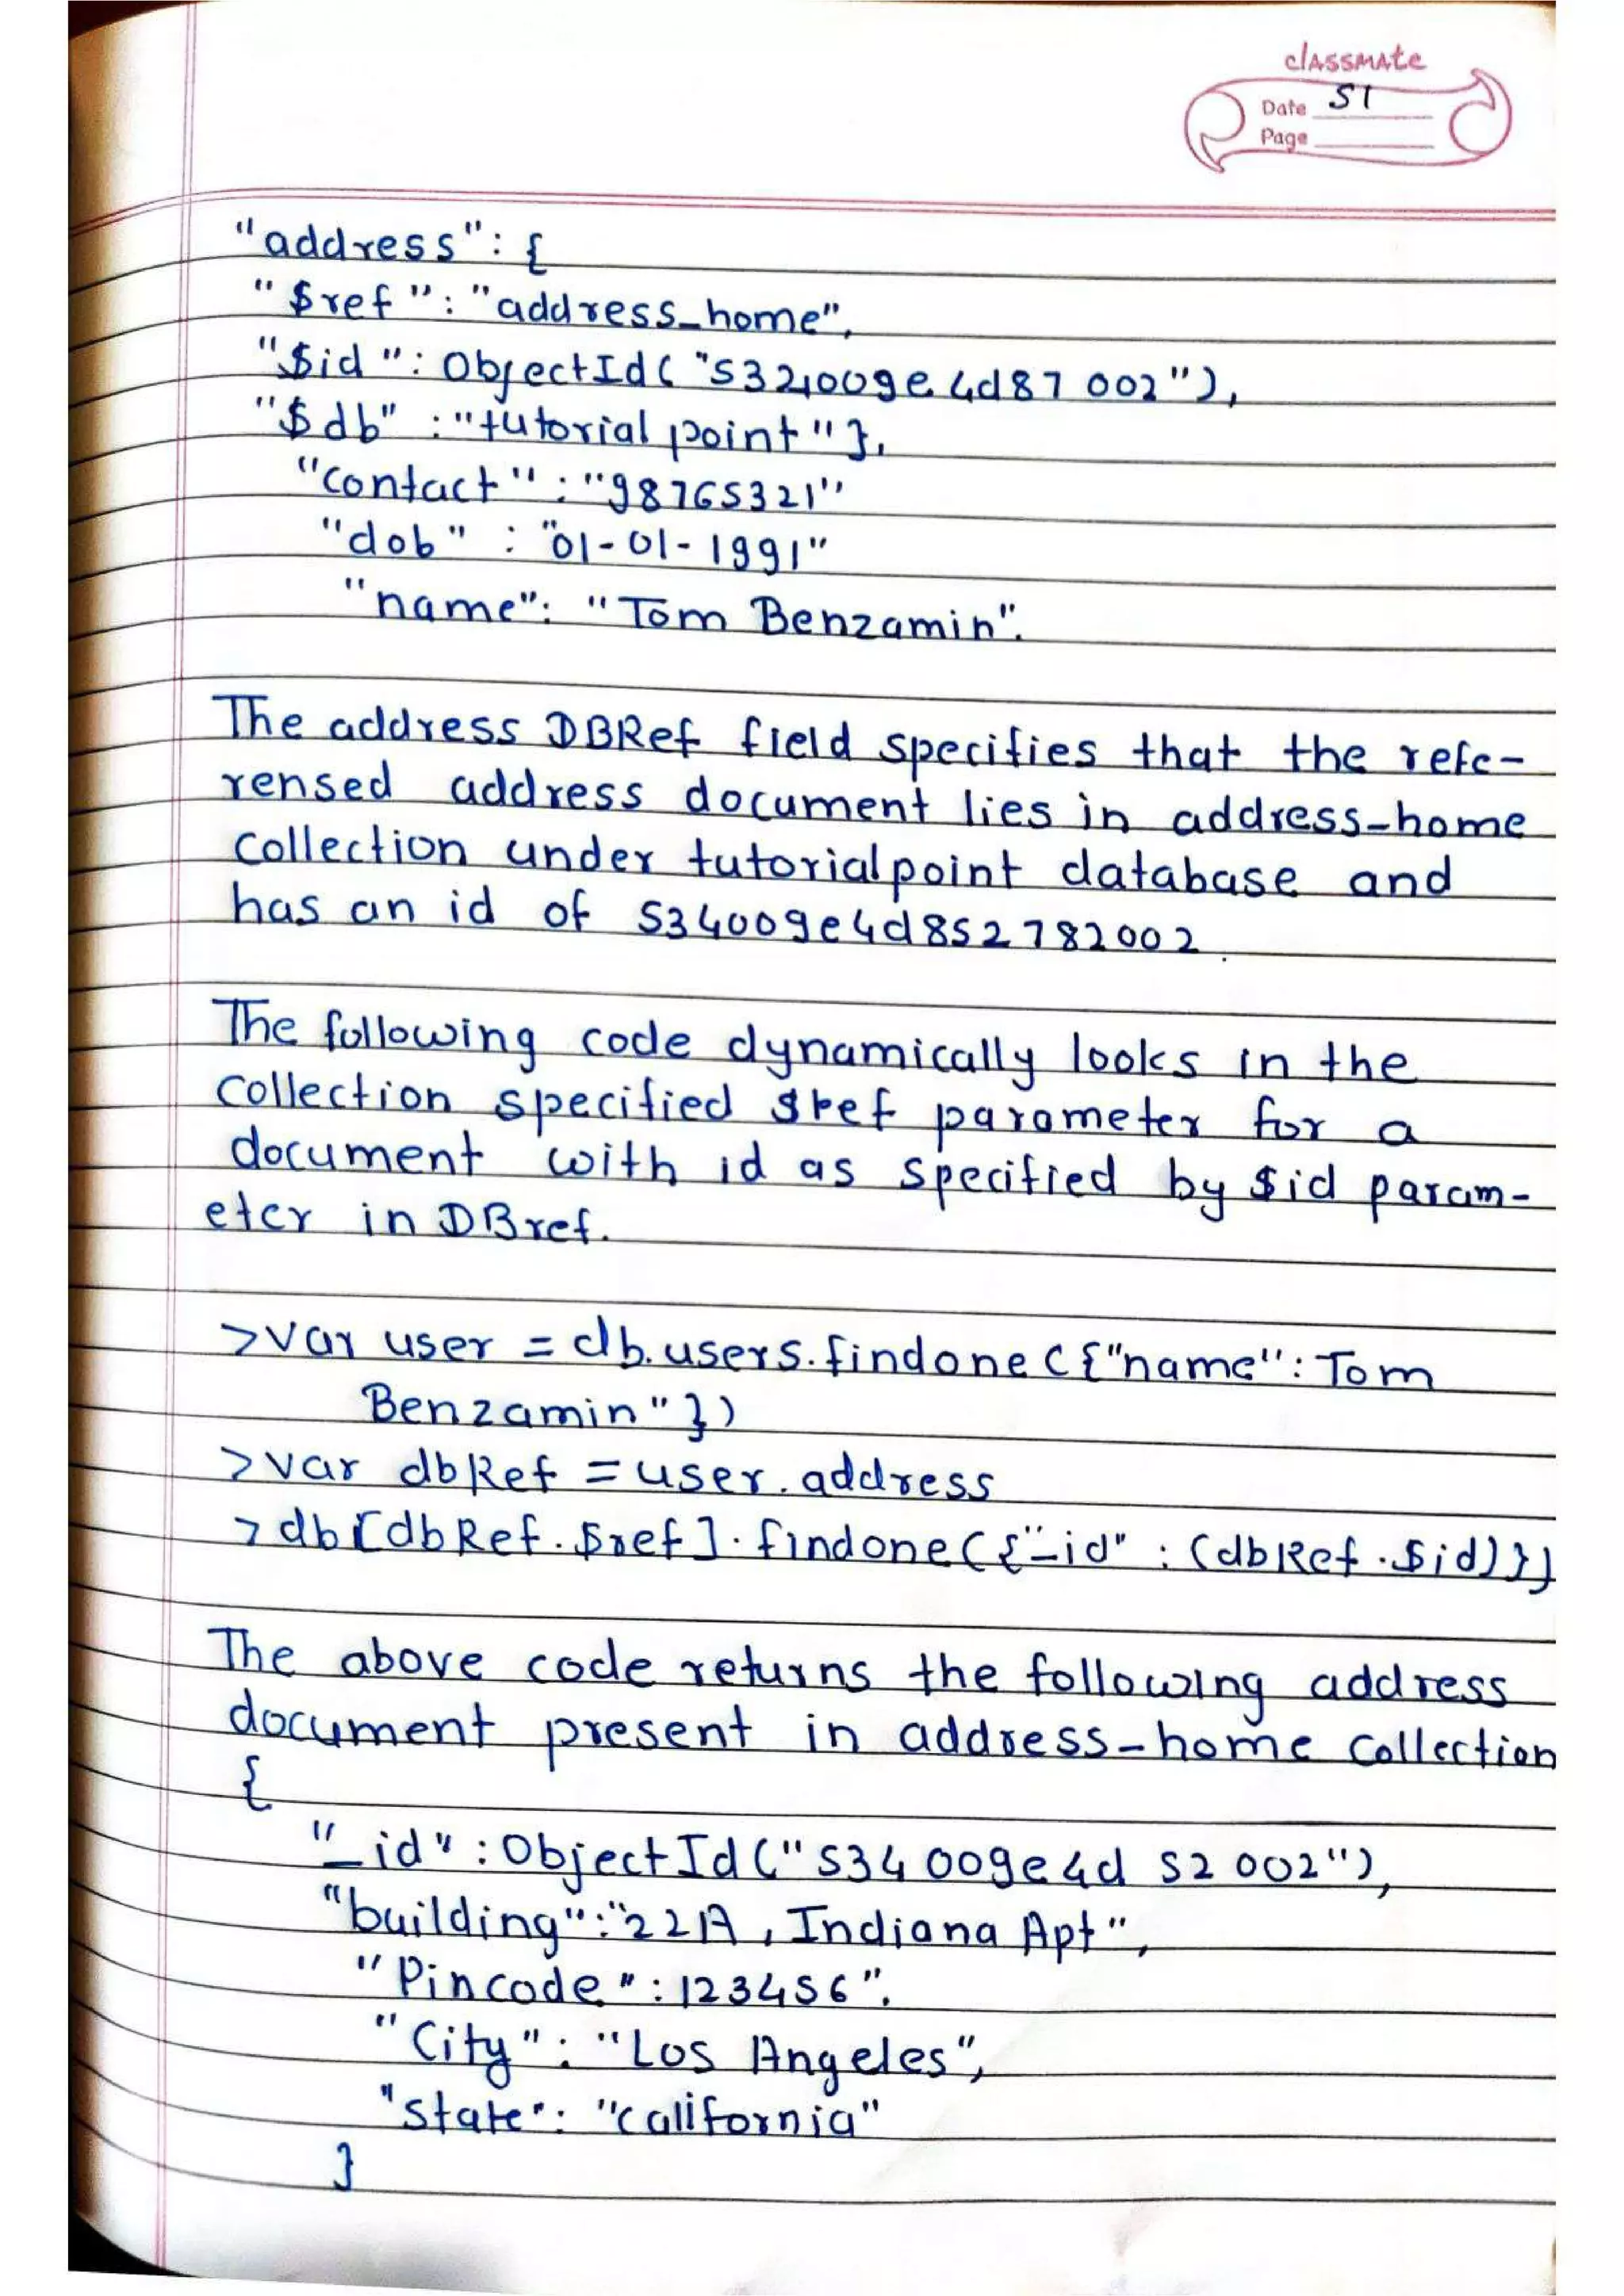 classmate
Date 51
Page
"address": {
"$ref": "address_home",
"$id": ObjectId("534009e4d87 002"),
"$db" : "tutorial point"},
"contact" : "98765321"
"dob" : "01-01-1991"
"name": "Tom Benzamin".
The address DBRef field specifies that the refe-
rensed address document lies in address_home
collection under tutorialpoint database and
has an id of 534009e4d852782002.
The following code dynamically looks in the
collection specified $ref parameter for a
document with id as specified by $id param-
eter in DBref.
>var user = db.users.findone({"name": Tom
Benzamin"})
>var dbRef = user.address
>db[dbRef.$ref].findone({"_id" : (dbRef.$id)})
The above code returns the following address
document present in address_home collection
{
"_id" : ObjectId("534 009e4d 52 002"),
"building":"22A, Indiana Apt",
"Pincode" : 123456",
"City" : "Los Angeles",
"state": "california"
}